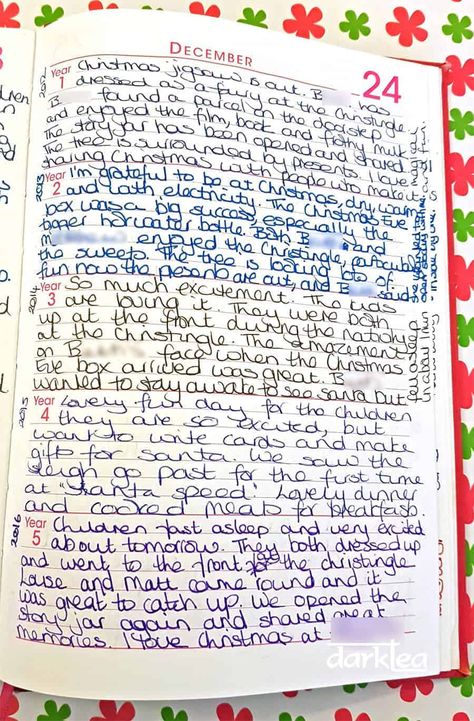 DECEMBER
24
2012
Year
1
Christmas jigsaw is out. B has
dressed as a fairy at the Christingle
and found a parcel on the doorstep
and enjoyed the film, book and frothy milk
The story jar has been opened and shared
The tree is surrounded by presents. I love
sharing Christmas with people who make it magical
2013
Year
2
I'm grateful to be at Christmas, dry, warm
and with electricity. The Christmas Eve
box was a big success especially the
bigger hot water bottle. Both B and
M enjoyed the Christingle, particularly
the sweets. The tree is looking lots of
fun now the presents are out, and B said
2014
Year
3
So much excitement. The kids
are loving it. They were both
up at the front during the nativity
at the Christingle. The amazement
on B face when the Christmas
Eve box arrived was great. B
wanted to stay awake to see santa but
fell asleep
2015
Year
4
Lovely fun day for the children
they are so excited, but
want to write cards and make
gifts for santa. We saw the
sleigh go past for the first time
at "santa speed". Lovely dinner
and cooked meats for breakfast.
2016
Year
5
Children fast asleep and very excited
about tomorrow. They both dressed up
and went to the front for the christingle
Louise and Matt came round and it
was great to catch up. We opened the
story jar again and shared great
memories. I love Christmas at
darktea